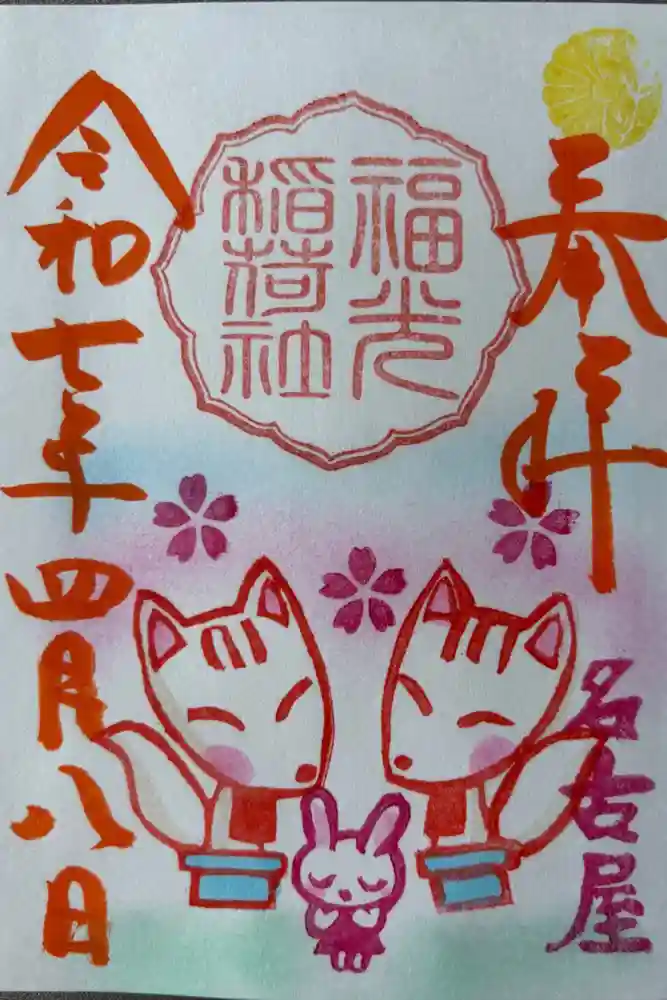 奉拝
名古屋
福光
稲荷社
令和七年四月八日